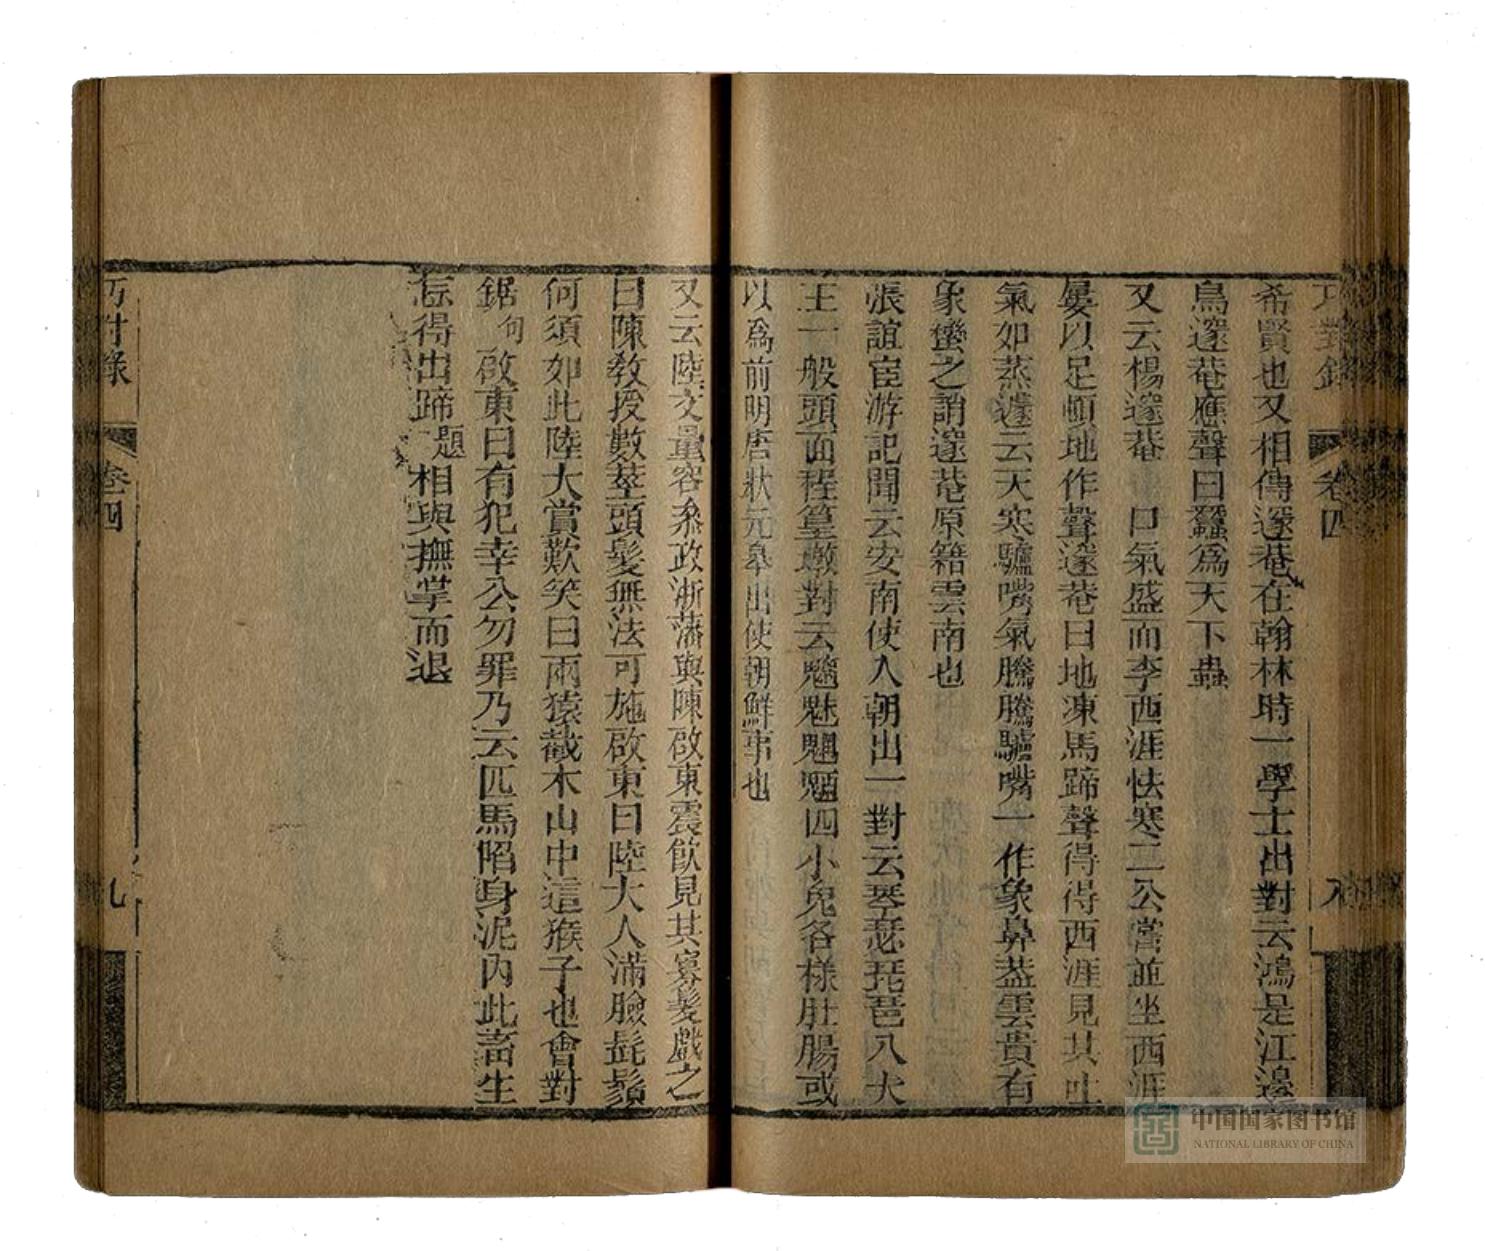 巧對錄 卷四 八
希賢也又相傳邃菴在翰林時一學士出對云鴻是江邊
鳥邃菴應聲曰蠶爲天下蟲
又云楊邃菴 口氣盛而李西涯怯寒二公嘗並坐西涯
屢以足頓地作聲邃菴曰地凍馬蹄聲得得西涯見其吐
氣如蒸遽云天寒驢嘴氣騰騰驢嘴一作象鼻蓋雲貴有
象蠻之誚邃菴原籍雲南也
張誼宦游記聞云安南使入朝出一對云琴瑟琵琶八大
王一般頭面程篁墩對云魑魅魍魎四小鬼各樣肚腸或
以爲前明唐狀元皋出使朝鮮事也
又云陸文量容叅政浙藩與陳啟東震飲見其寡髮戲之
曰陳教授數莖頭髮無法可施啟東曰陸大人滿臉髭鬚
何須如此陸大賞歎笑曰兩猿截木山中這猴子也會對
鋸句啟東曰有犯幸公勿罪乃云匹馬陷身泥內此畜生
怎得出蹄題相與撫掌而退
巧對錄 卷四 九
中国国家图书馆
NATIONAL LIBRARY OF CHINA